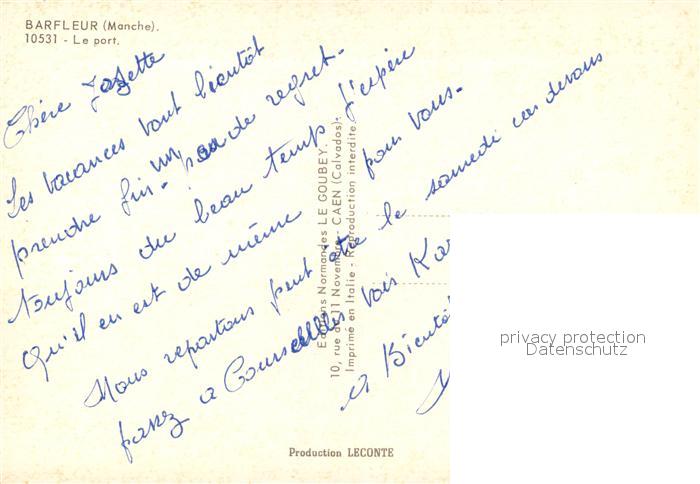 BARFLEUR (Manche).
10531 - Le port.
Chère Josette
Les vacances vont bientôt
prendre fin. un peu de regret.
toujours du beau temps J'espère
qu'il en est de même pour vous.
Nous repartons peut être le samedi car devons
passez a Courseulles voir
a Bientôt
Editions Normandes LE GOUBEY.
10, rue du 11 Novembre - CAEN (Calvados).
Imprimé en Italie - Reproduction interdite.
Production LECONTE
privacy protection
Datenschutz